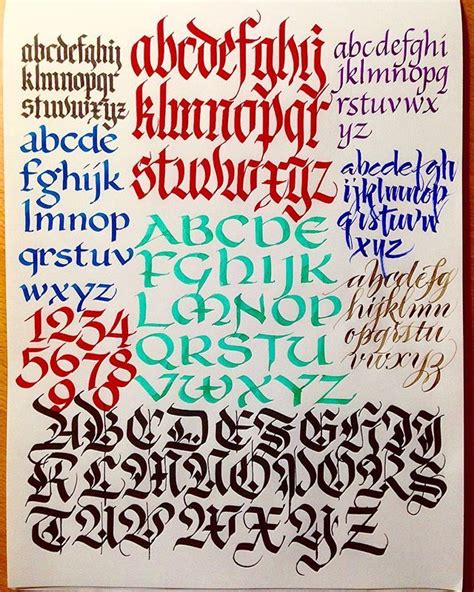 abcdefghij
klmnopqr
stuvwxyz
abcdefghij
klmnopqr
stuvwxyz
abcdefghi
jklmnopq
rstuvwx
yz
abcde
fghijk
lmnop
qrstuv
wxyz
abcdefgh
ijklmnop
qrstuvw
xyz
ABCDE
FGHIJK
LMNOP
QRSTU
VWXYZ
abcdefg
hijklmn
opqrstu
vwxyz
1234
5678
90
ABCDEFGHIJ
KLMNOPQRS
TUVWXYZ